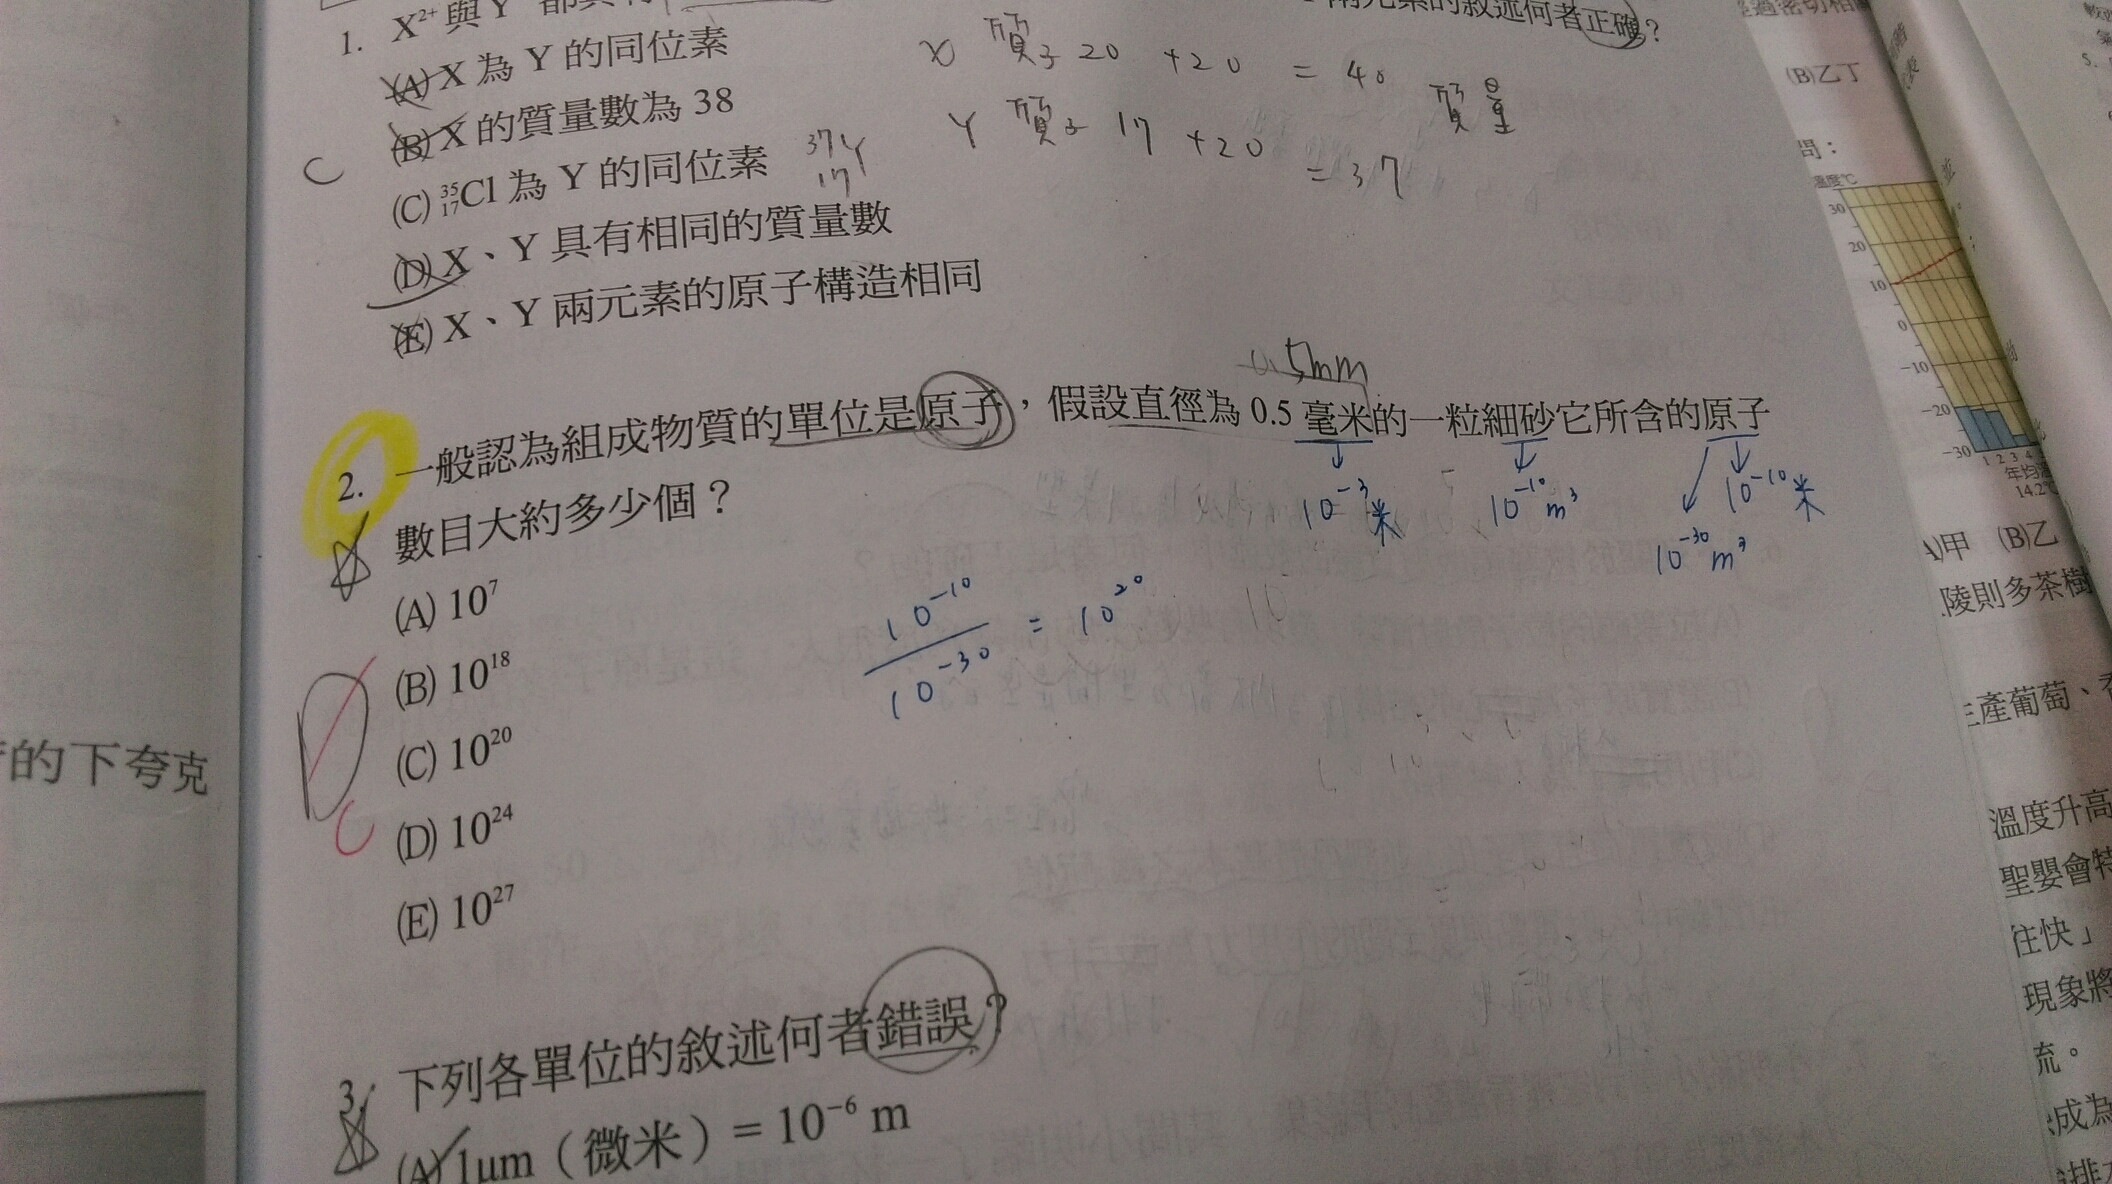 1. X²⁺與Y
兩元素的敘述何者正確？
(A) X 為 Y 的同位素
(B) X 的質量數為 38
(C) ³⁵₁₇Cl 為 Y 的同位素
(D) X、Y 具有相同的質量數
(E) X、Y 兩元素的原子構造相同
C
³⁷₁₇Y
X 質子 20 +20 = 40 質量
Y 質子 17 +20 = 37
0.5mm
2. 一般認為組成物質的單位是原子，假設直徑為 0.5 毫米的一粒細砂它所含的原子
數目大約多少個？
10⁻³米
10⁻¹⁰m³
10⁻¹⁰米
10⁻³⁰m³
(A) 10⁷
(B) 10¹⁸
(C) 10²⁰
(D) 10²⁴
(E) 10²⁷
10⁻¹⁰
10⁻³⁰
= 10²⁰
D
C
3. 下列各單位的敘述何者錯誤？
(A) 1μm（微米）= 10⁻⁶ m
的下夸克
(B)乙丁
問：
溫度℃
30
20
10
0
-10
-20
-30
1 2 3 4
年均溫
14.2℃
(A)甲 (B)乙
陵則多茶樹
產葡萄、
溫度升高
聖嬰會特
往快」
現象將
流。
成為
5.